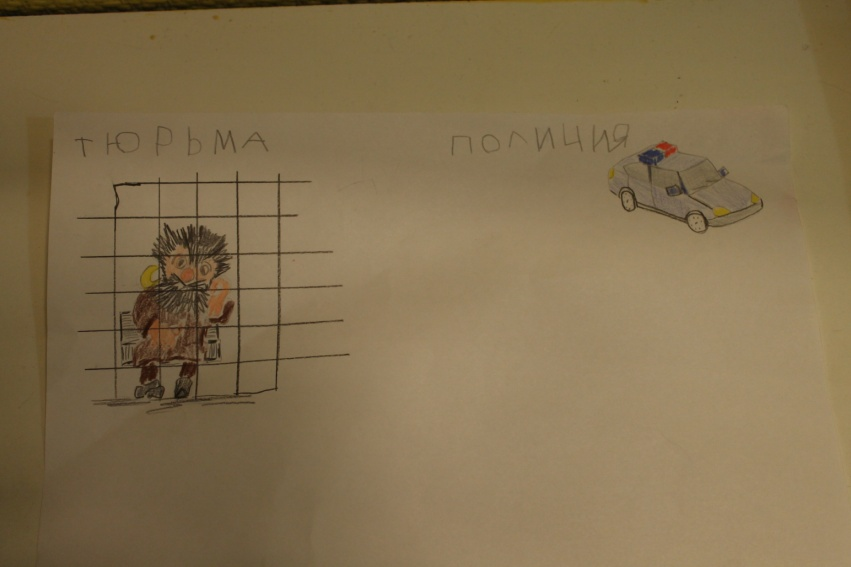 ТЮРЬМА
ПОЛИЦИЯ